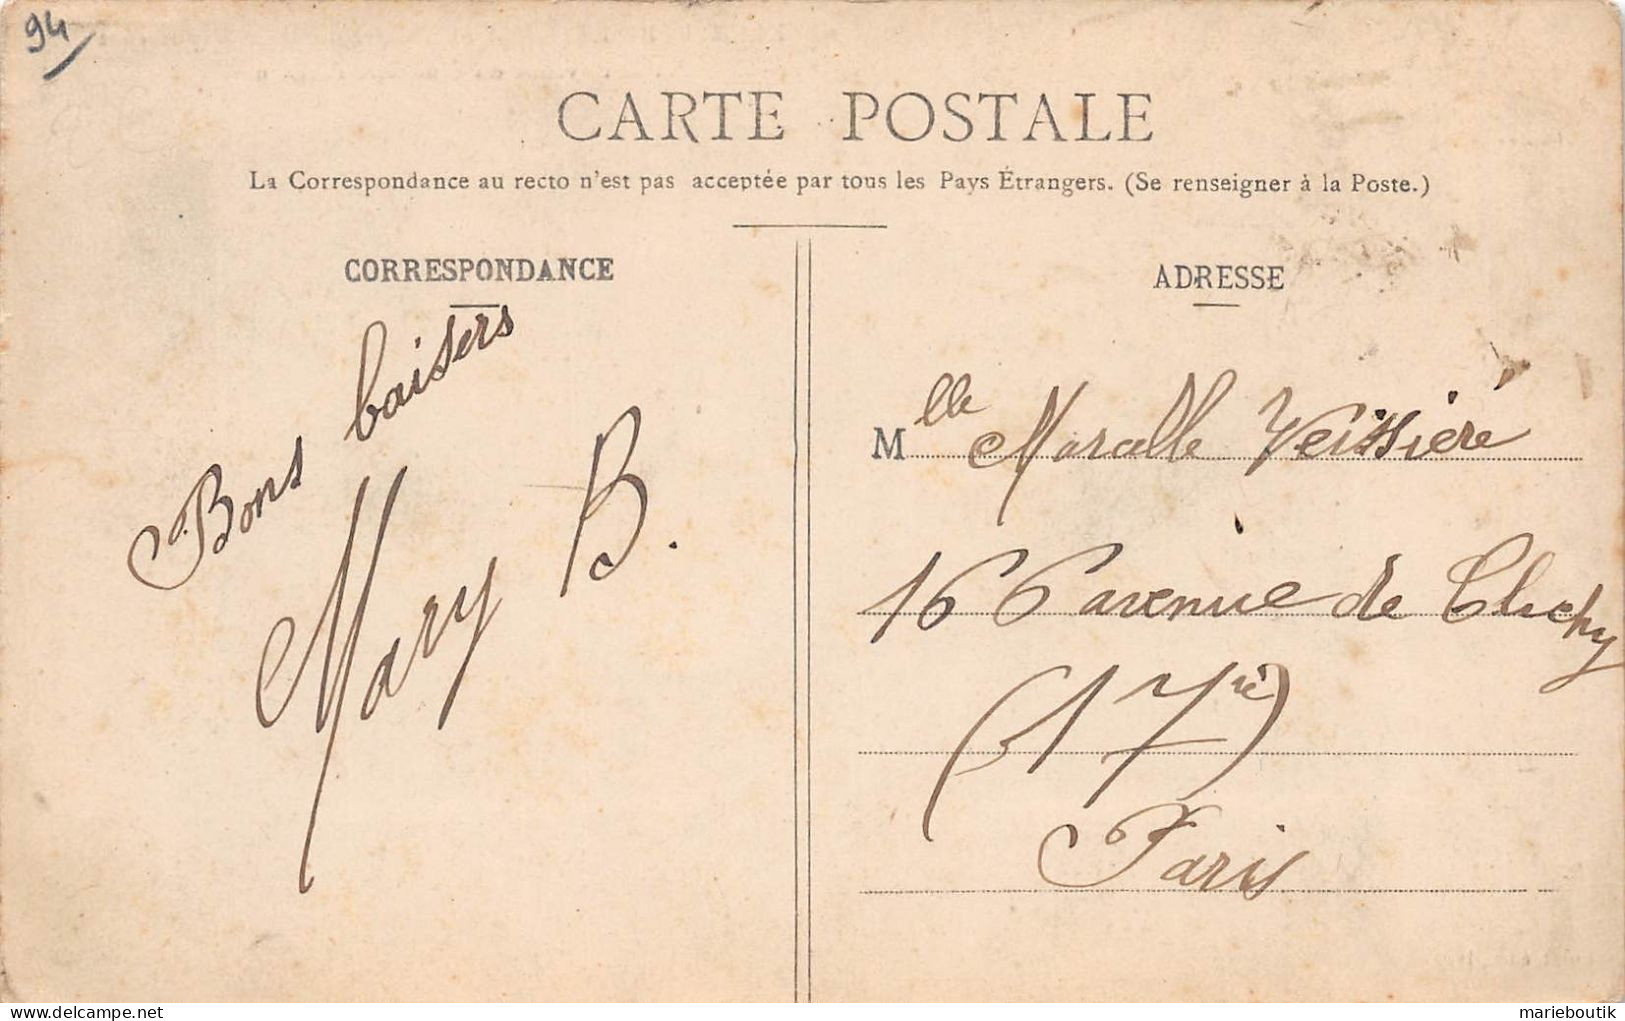 94
CARTE POSTALE
La Correspondance au recto n'est pas acceptée par tous les Pays Étrangers. (Se renseigner à la Poste.)
CORRESPONDANCE
Bons baisers
Mary B.
ADRESSE
Mlle Maralle Veissiere
166 avenue de Clichy
(17e)
Paris
delcampe.net
marieboutik